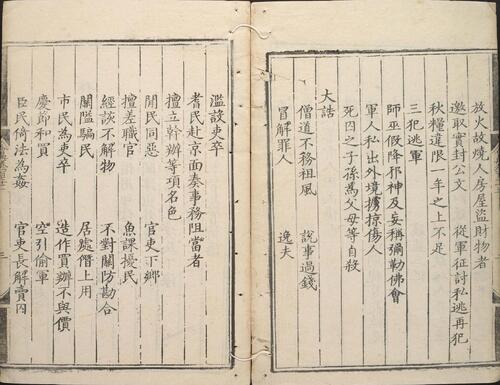 放火故燒人房屋盜財物者
邀取實封公文 從軍征討私逃再犯
秋糧違限一年之上不足
三犯逃軍
師巫假降邪神及妄稱彌勒佛會
軍人私出外境擄掠傷人
死囚之子孫為父母等自殺
大誥
僧道不務祖風 說事過錢
冒解罪人 逸夫
濫設吏卒
耆民赴京面奏事務阻當者
擅立幹辦等項名色
閒民同惡 官吏下鄉
擅差職官 魚課擾民
經該不解物 不對關防勘合
關隘騙民 居處僭上用
市民為吏卒 造作買辦不與價
慶節和買 空引偷軍
臣民倚法為姦 官吏長解賣囚